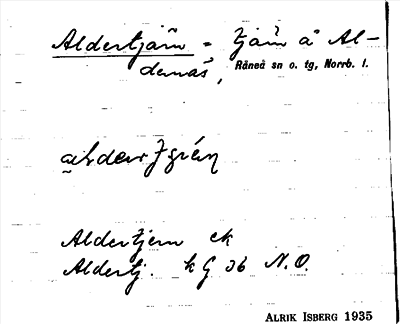 Aldertjärn = tjärn å Al-
dernäs, Råneå sn o. tg, Norrb. l.
Aldertjern ek
Aldertj. kG 36 N.O.
ALRIK ISBERG 1935